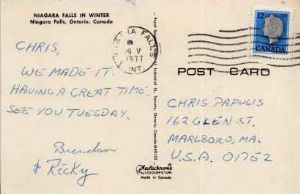 NIAGARA FALLS IN WINTER
Niagara Falls, Ontario, Canada
CHRIS,
WE MADE IT.
HAVING A GREAT TIME.
SEE YOU TUESDAY.
Brendan
& Ricky
FALLS
V
1977
ONT.
12
CANADA
POST CARD
CHRIS PAPULIS
162 GLEN ST.
MARLBORO, MA.
U.S.A. 01752
Plastichrome
Made in Canada